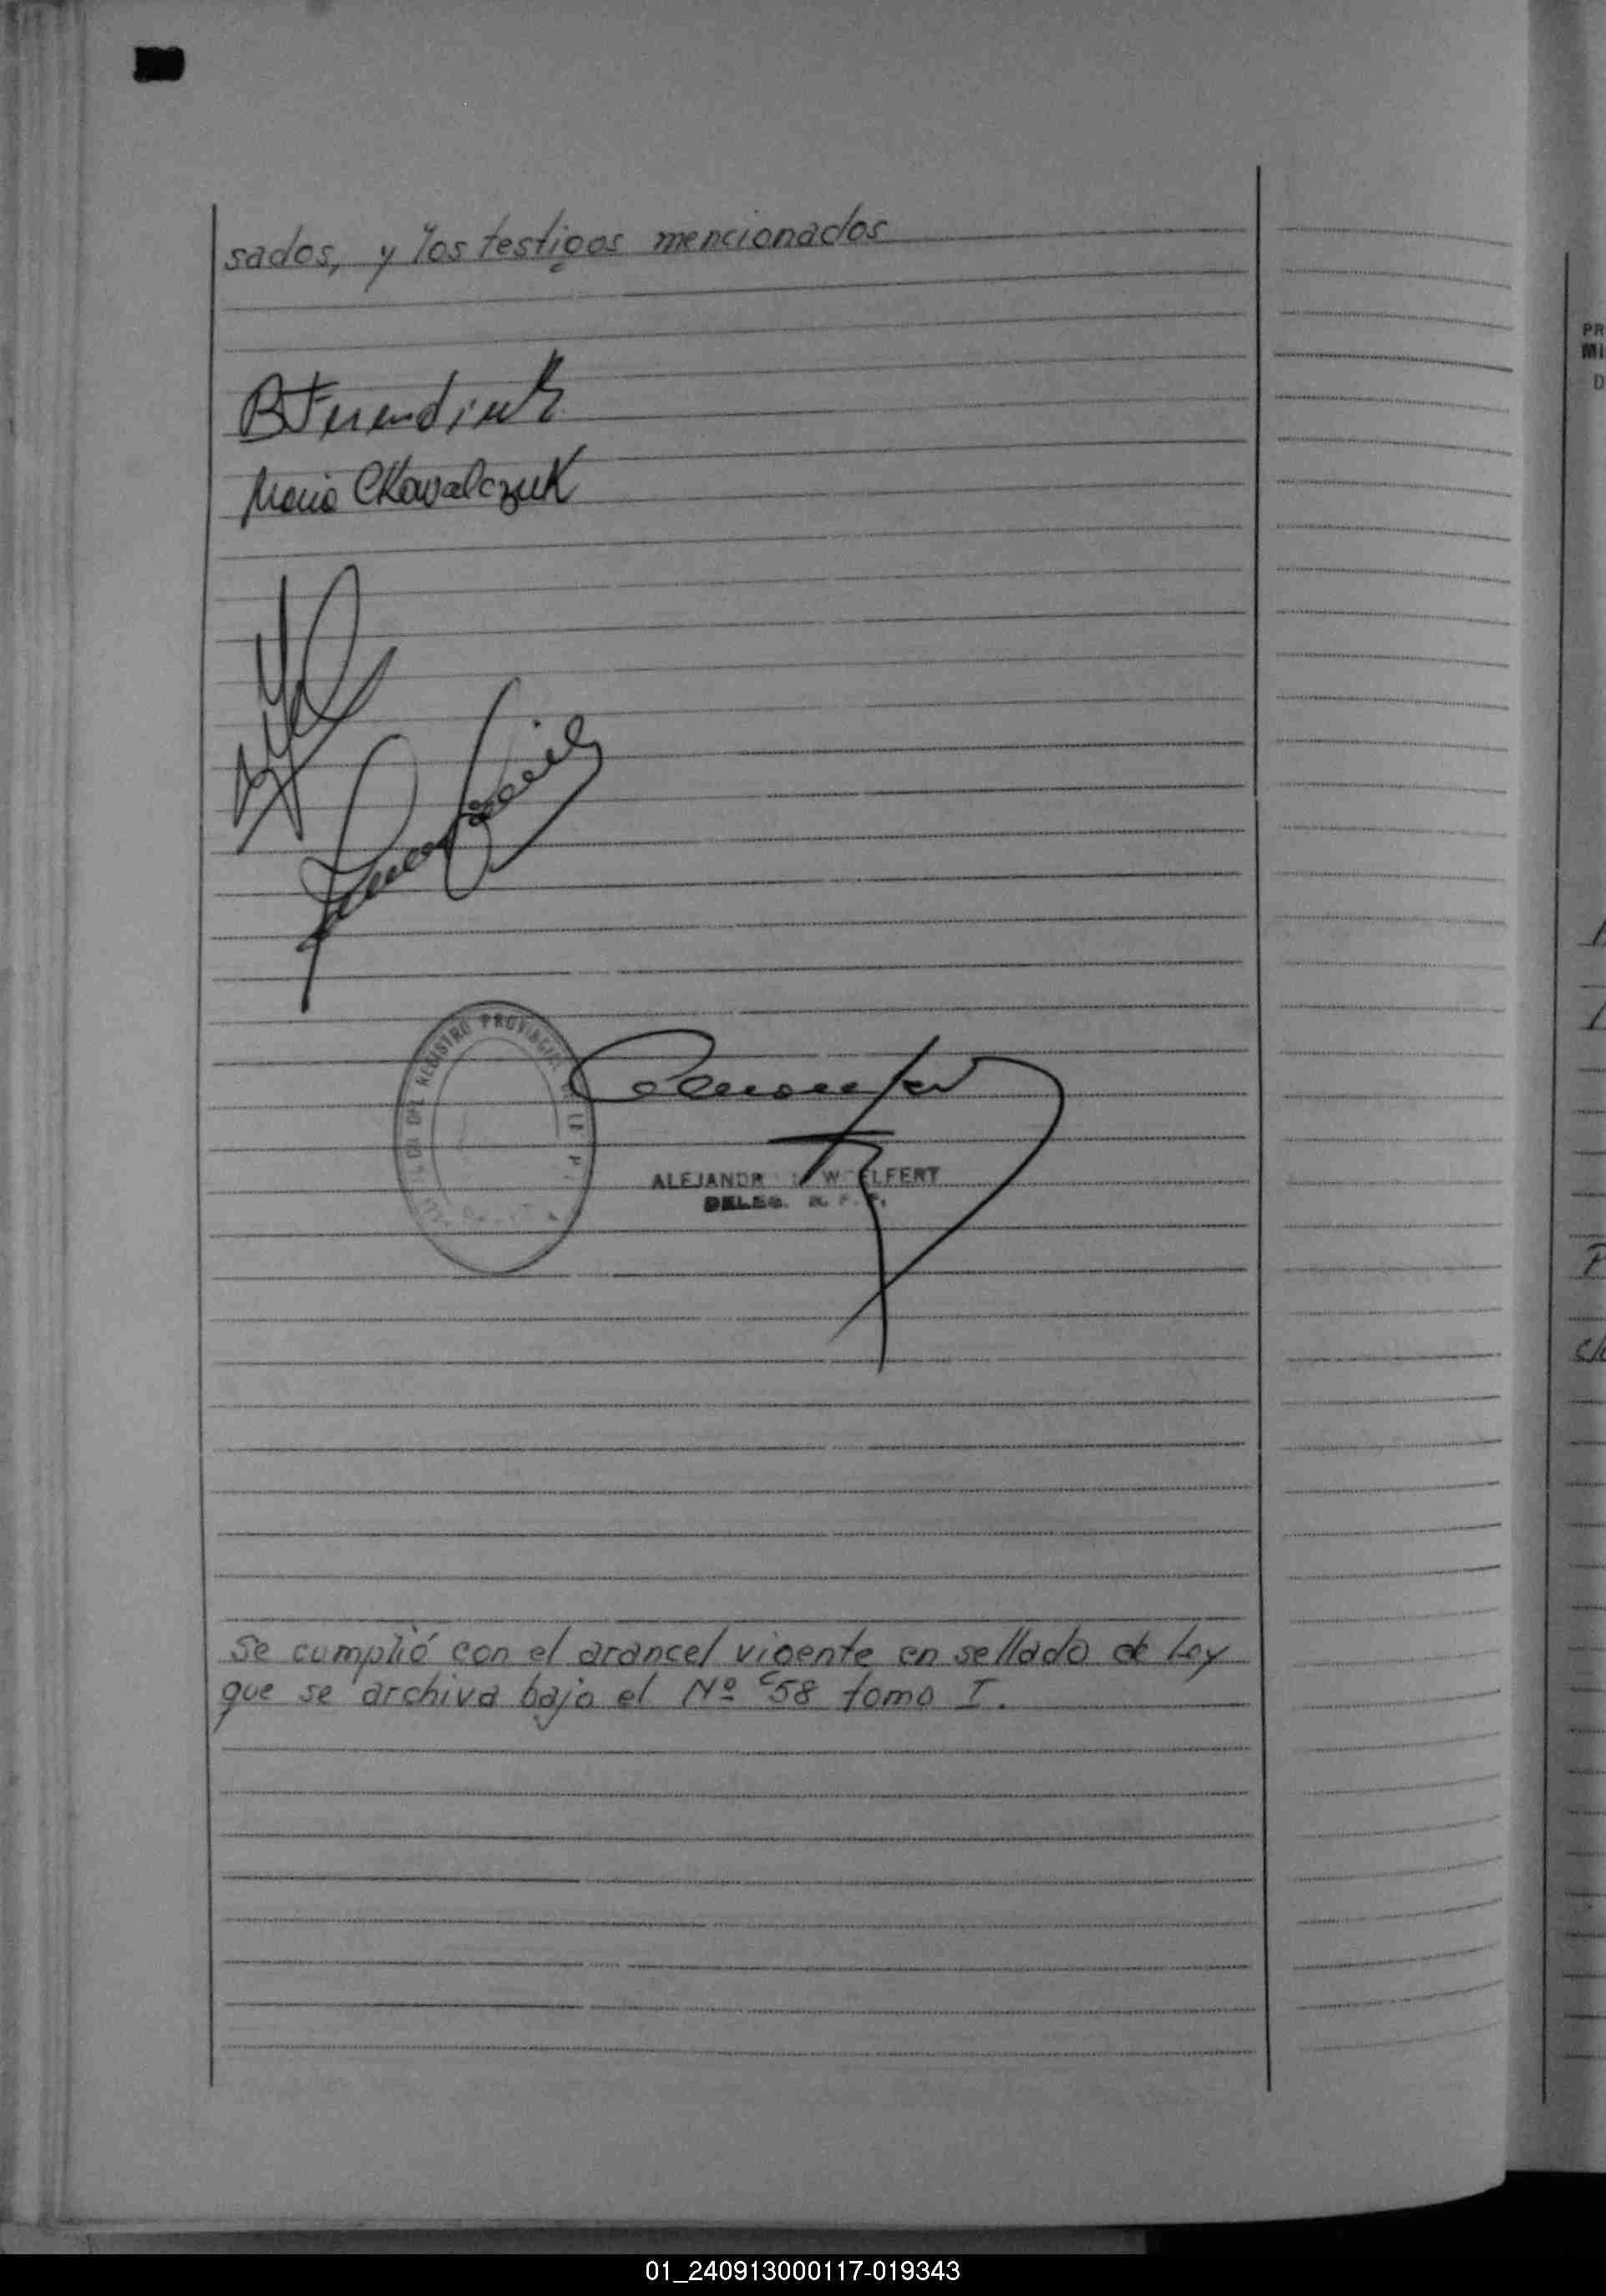 sados, y los testigos mencionados
Maria CKowalczuk
REGISTRO PROVINCIAL
ALEJANDR W ELFERT
DELEG. R. P. P.
Se cumplió con el arancel vigente en sellado de Ley
que se archiva bajo el Nº 58 tomo I.
PR
MI
D
01_240913000117-019343